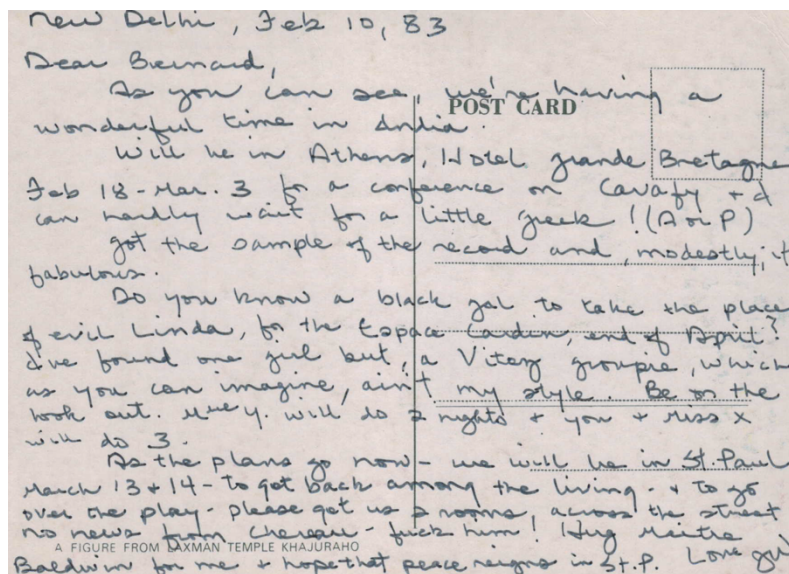 New Delhi, Feb 10, 83
Dear Bernard,
As you can see, we're having a
POST CARD
wonderful time in India.
Will be in Athens, Hotel Grande Bretagne
Feb 18 - Mar. 3 for a conference on Cavafy + I
can hardly wait for a little Greek! (A or P)
Got the sample of the record and, modestly, it
fabulous.
Do you know a black gal to take the place
of evil Linda, for the Espace Cardin, end of April?
I've found one girl but, a Vitez groupie, which
as you can imagine, ain't my style. Be on the
look out. y. will do 2 nights + you + Miss X
will do 3.
As the plans go now - we will be in St. Paul
March 13 + 14 - to get back among the living - + to go
over the play - please get us 2 rooms across the street
no news from Chereau - fuck him! Hug Maitre
A FIGURE FROM LAXMAN TEMPLE KHAJURAHO
Baldwin for me + hope that peace reigns in St. P. Love